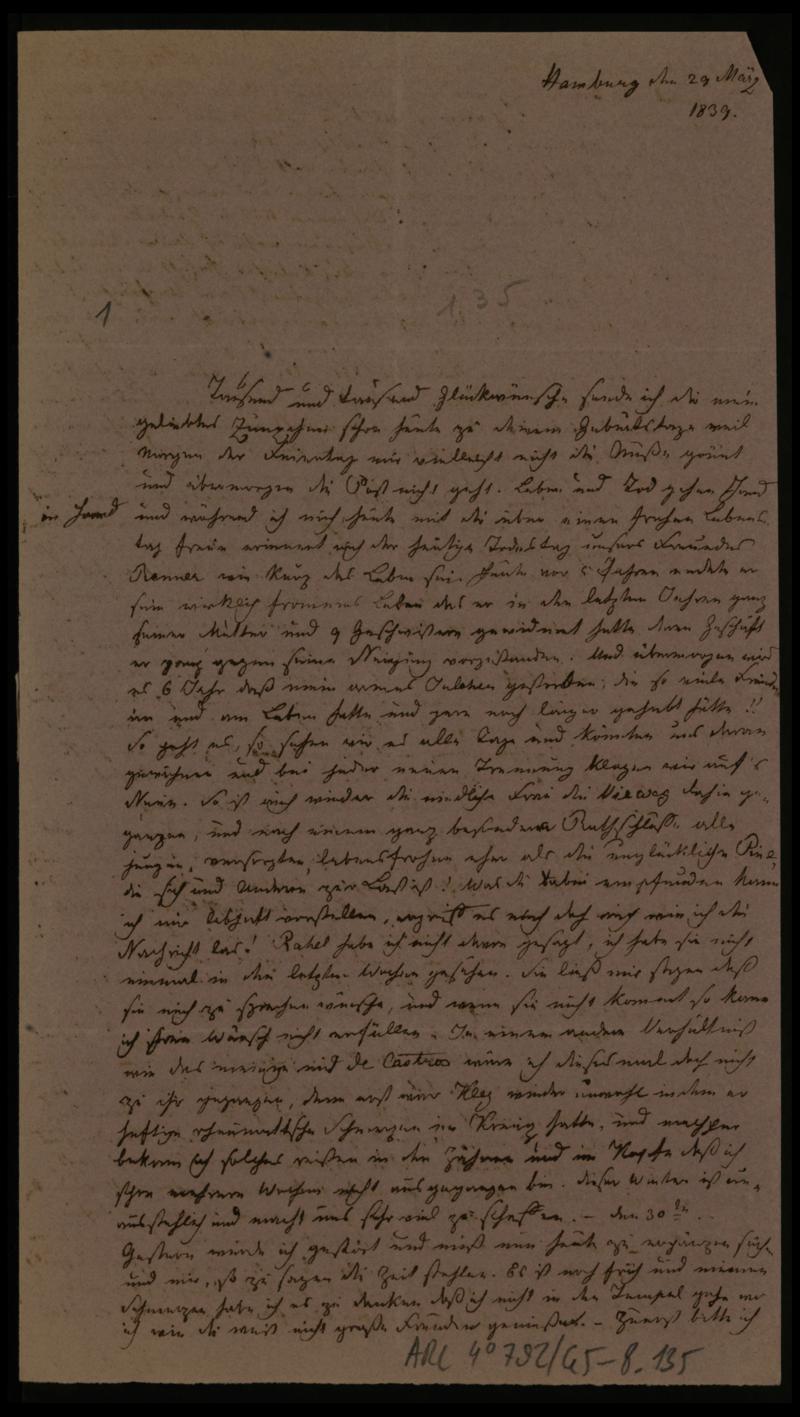 Hamburg den 29 März
1839.
1
135
Tausend und tausend Glückwünsche sende ich dir mein
geliebtes schon heute zu deinem Geburtstage weil
Morgen der Feiertag mir vielleicht nicht die Muße gönnt
und übermorgen die Post nicht geht. Leben und Tod gehen Hand
in Hand und während ich mich heute mit dir über einen frohen Lebens
tag freue erinnert mich der heutige Todestag unsers Freundes
Renner wie kurz das Leben sei. Heute vor 5 Jahren endete er
sein wirklich frommes Leben das er in den letzten Jahren ganz
seiner Mutter und 9 Geschwistern gewidmet hatte deren Geschäft
er ganz gegen seine Neigung vorgestanden. Und übermorgen wird
es 6 Jahr daß mein armes Julchen gestorben, die so viele Freude
an und am Leben hatte und gern noch länger gehabt hätte!!
So geht es, so sehen wir es alle Tage und könnten uns daran
gewöhnen und bei jeder neuen Trennung klagen wir auf's
Neue. So ist auch wieder die niedliche Frau die Vieweg dahin ge-
gangen, und nach einem ganz besondern Rathschluße alle
jungen, versorgten, lebensfrohen eher als die unglückliche
die sich und Andern zur Last ist! Was du dabei empfunden kann
ich mir lebhaft vorstellen, ergriff es mich doch auch wie ich die
Nachricht las! Rahel habe ich nicht davon gesagt, ich habe sie nicht
einmal in den letzten Wochen gesehen. Sie ließ mir sagen daß
sie mich zu sprechen wünsche, und wenn sie nicht kommt so kann
ich ihren Wunsch nicht erfüllen. In einem andern Verhältniß
wie das meinige mit de Castros wäre ich diesesmal doch nicht
zu ihr gegangen, denn erst war Kley wieder unwohl indem er
heftige rheumatische Schmerzen im Kreuz hatte, und nachher
bekam ich solches reißen in den Zähnen und im Kopfe daß ich
schon mehrere Wochen nicht ausgegangen bin. Dieser Winter ist un-
ausstehlich und macht uns sehr viel zu schaffen. – den 30ten
Gestern wurde ich gestört und muß nun heute zu ergänzen suchen
und mir, so zu sagen die Zeit stehlen. Es ist noch früh und meinen
Schmerzen habe ich es zu danken daß ich nicht in den Tempel gehe wo
ich wie du weist nicht große Freuden genieße. – Zuerst bitte ich
ARC 4° 792/G5-8.135